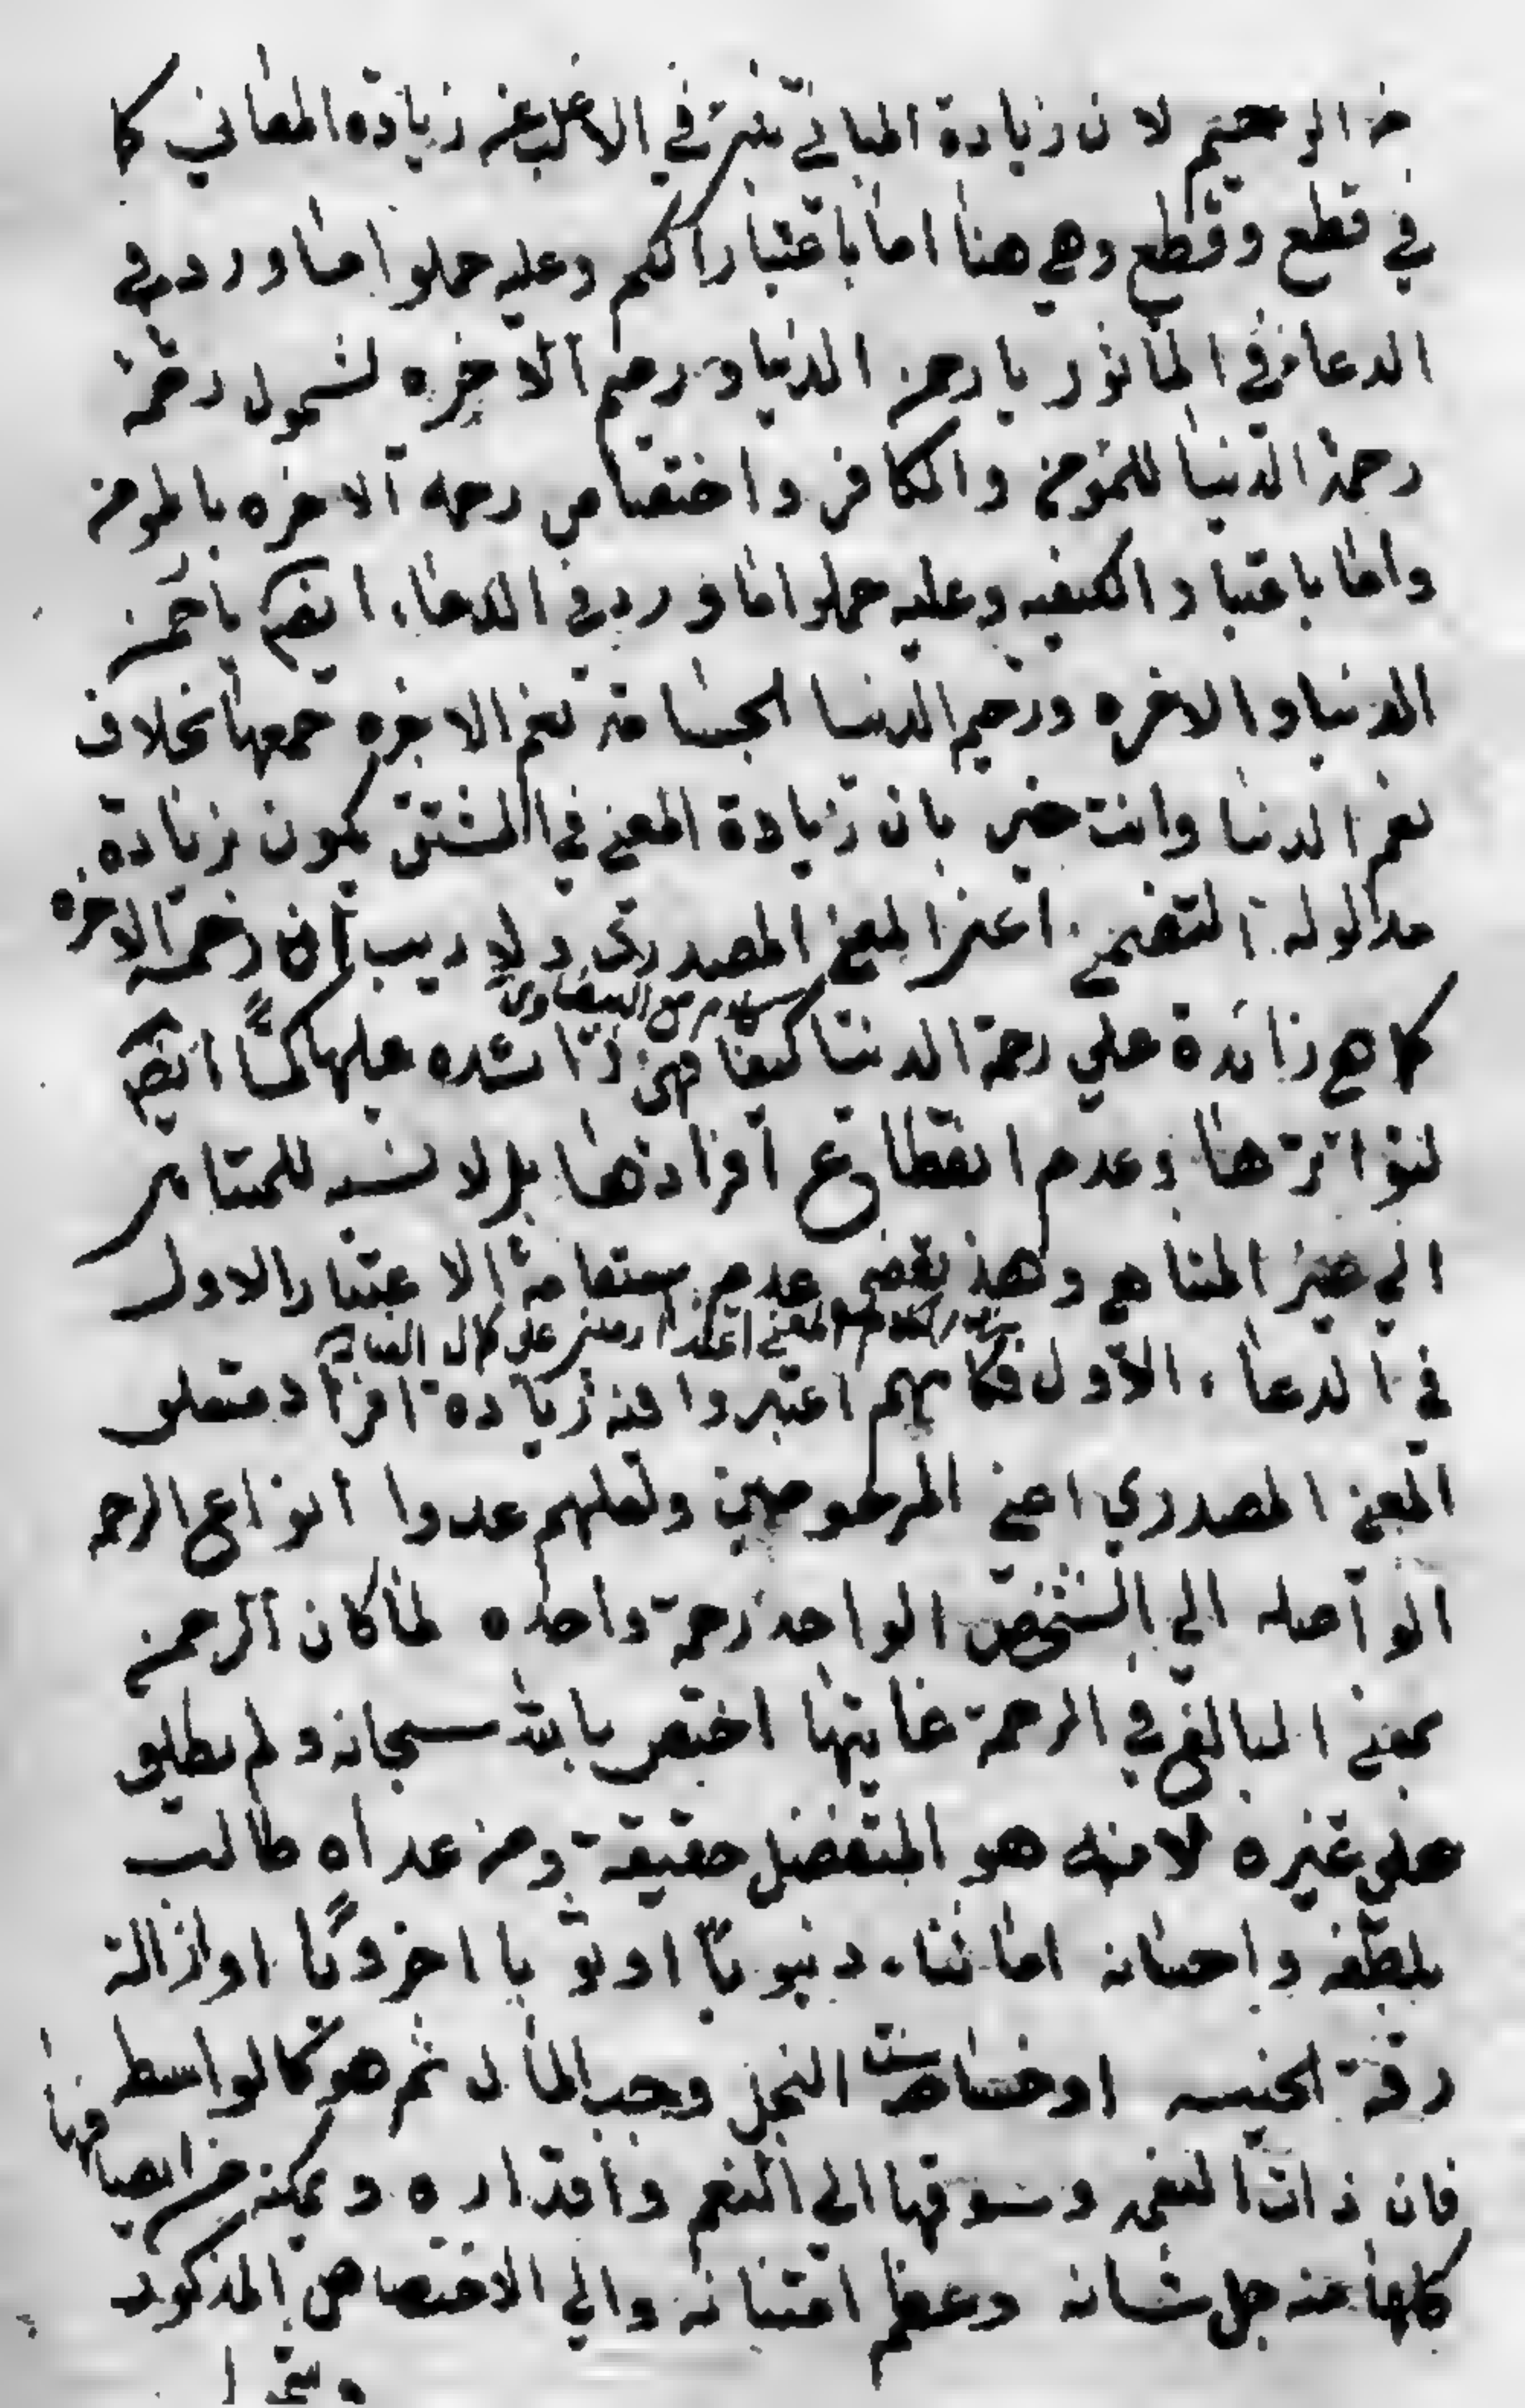 من الرحيم لان زيادة المباني تنبئ في الاغلب عن زيادة المعاني كما
في قطع وقطع وهي هنا اما باعتبار الكم وعليه حملوا ما ورد في
الدعا في الماثور يا رحمن الدنيا ورحيم الاخره لشمول رحمة
رحمة الدنيا للمؤمن والكافر واختصاص رحمه الاخره بالمومن
واما باعتبار الكيفيه وعليه حملوا ما ورد في الدعاء ايضا يا رحمن
الدنيا والاخره ورحيم الدنيا لجسامة نعم الاخره جمعها بخلاف
نعم الدنيا وانت خبير بان زيادة المعنى في المشتق يكون بزيادة
مدلوله التضمني اعني المعنى المصدري ولا ريب ان رحمة الاخره
كلام مع البيضاوي
كما هي زائدة علي رحمة الدنيا كيفا فهي زائده عليها كما ايضا
لتواترها وعدم انقطاع افرادها بل لا نسبه للمتناهي
الي غير المتناهي وهذ يقضي عدم ستقامة الاعتبار الاول
المعنى على كمال
في الدعاء الاول فكانهم اعتبروا فيه زيادة افراد متعلق
المعنى المصدري اعني المرحومين ولعلهم عدوا انواع الرحمه
الواصله الي الشخص الواحد رحمة واحده لما كان الرحمن
بمعنى المبالغ في الرحمة غايتها اختص بالله سبحانه ولم يطلق
علي غيره لانه هو المتفضل حقيقة ومن عداه طالب
بلطفه واحسانه اما ثناء دنيويا او ثوابا اخرويا او ازالة
رقة الجنسيه او خساسة البخل وحب المال ثم هو كالواسط
فان ذات النعمه وسوقها الى المنعم واقداره وتمكنه من ايصالها
كلها منه جل شانه وعظم امتنانه والي الاختصاص المذكور